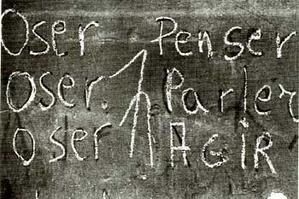 Oser Penser
oser. Parler
oser AGiR